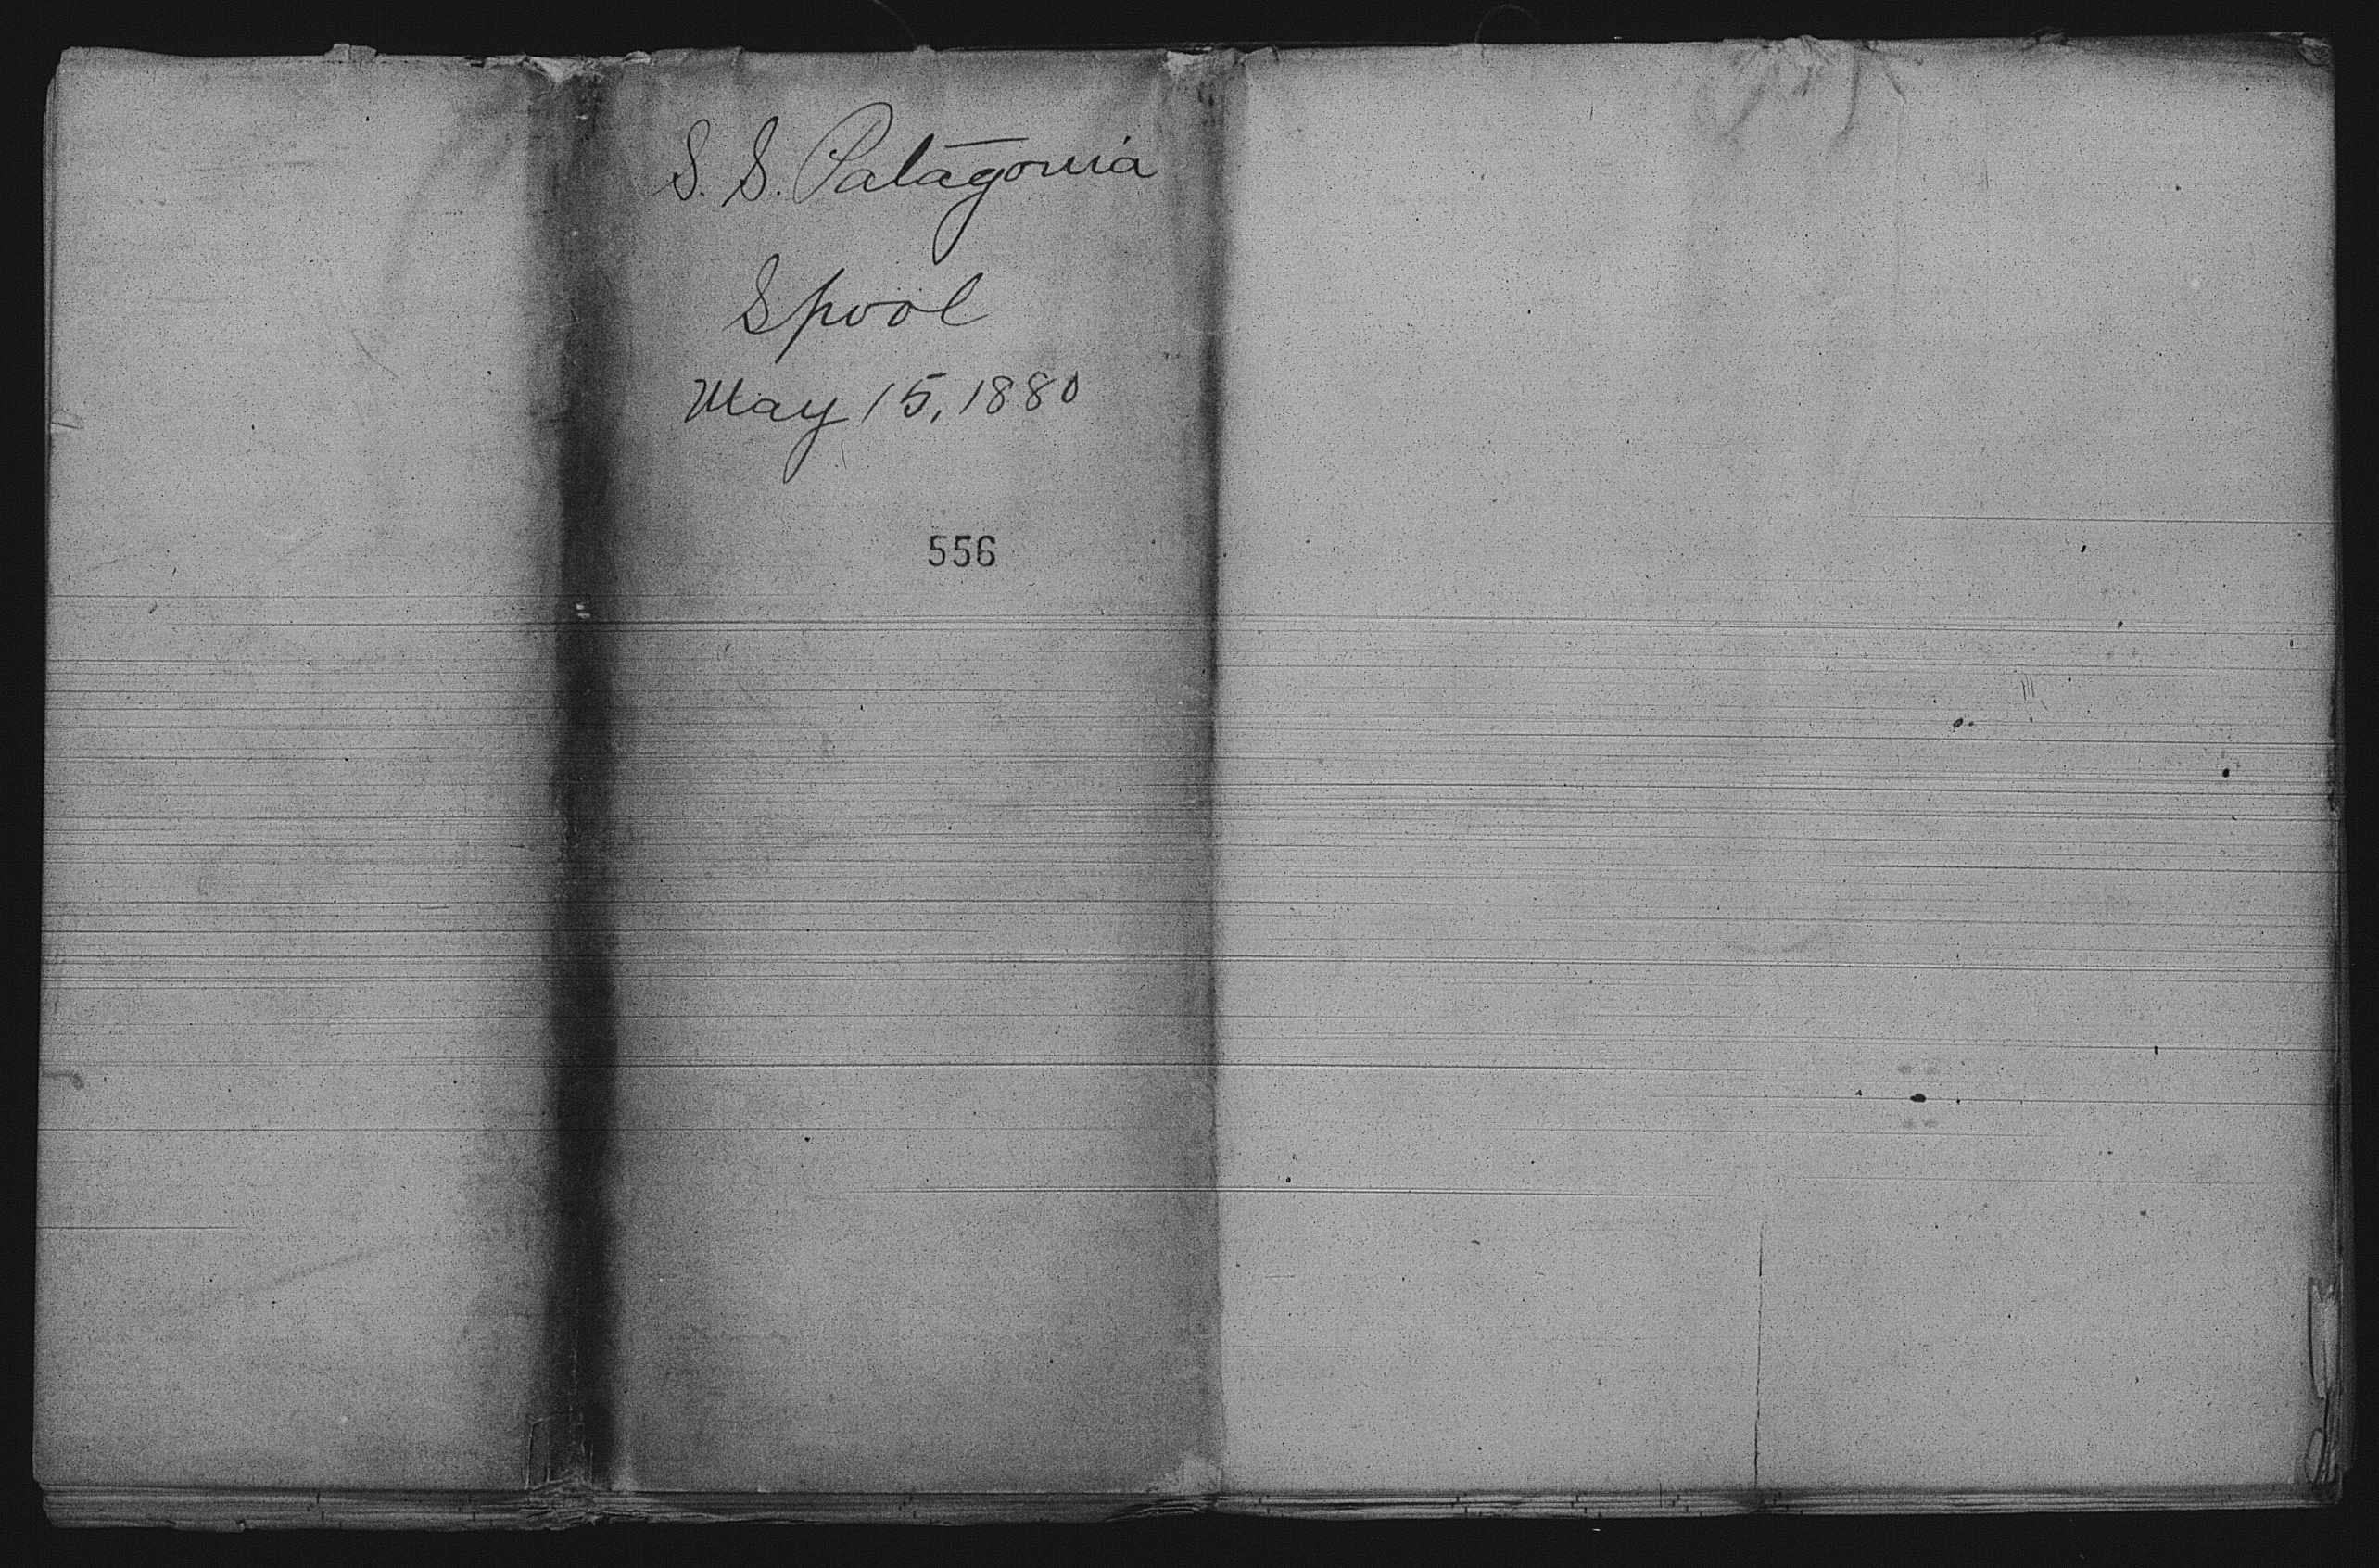 S. S. Patagonia
Spool
May 15, 1880
556